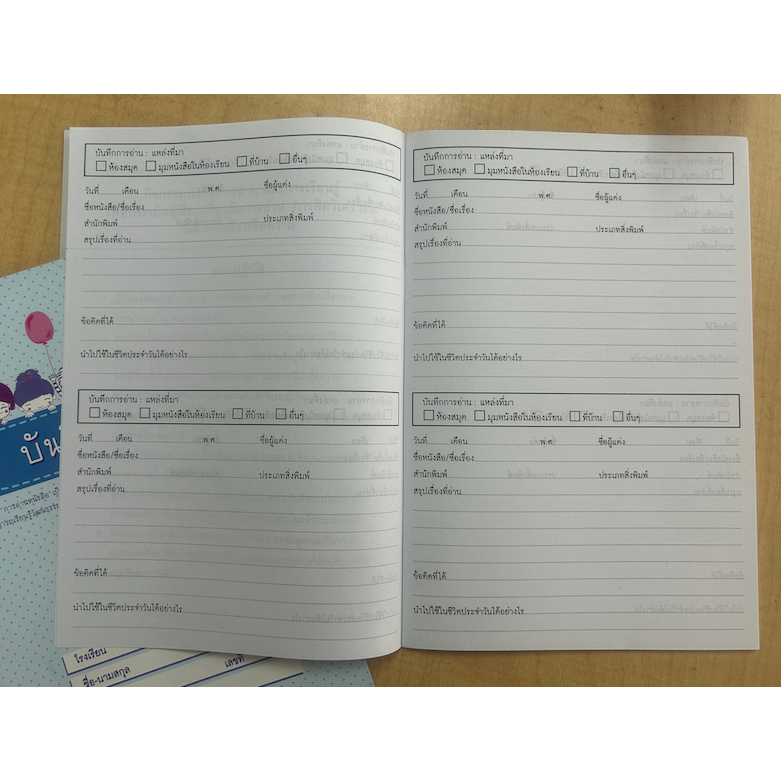 บันทึกการอ่าน : แหล่งที่มา
ห้องสมุด มุมหนังสือในห้องเรียน ที่บ้าน อื่นๆ
วันที่ เดือน พ.ศ. ชื่อผู้แต่ง
ชื่อหนังสือ/ชื่อเรื่อง
สำนักพิมพ์ ประเภทสิ่งพิมพ์
สรุปเรื่องที่อ่าน
ข้อคิดที่ได้
นำไปใช้ในชีวิตประจำวันได้อย่างไร
บันทึกการอ่าน : แหล่งที่มา
ห้องสมุด มุมหนังสือในห้องเรียน ที่บ้าน อื่นๆ
วันที่ เดือน พ.ศ. ชื่อผู้แต่ง
ชื่อหนังสือ/ชื่อเรื่อง
สำนักพิมพ์ ประเภทสิ่งพิมพ์
สรุปเรื่องที่อ่าน
ข้อคิดที่ได้
นำไปใช้ในชีวิตประจำวันได้อย่างไร
บันทึกการอ่าน : แหล่งที่มา
ห้องสมุด มุมหนังสือในห้องเรียน ที่บ้าน อื่นๆ
วันที่ เดือน พ.ศ. ชื่อผู้แต่ง
ชื่อหนังสือ/ชื่อเรื่อง
สำนักพิมพ์ ประเภทสิ่งพิมพ์
สรุปเรื่องที่อ่าน
ข้อคิดที่ได้
นำไปใช้ในชีวิตประจำวันได้อย่างไร
บันทึกการอ่าน : แหล่งที่มา
ห้องสมุด มุมหนังสือในห้องเรียน ที่บ้าน อื่นๆ
วันที่ เดือน พ.ศ. ชื่อผู้แต่ง
ชื่อหนังสือ/ชื่อเรื่อง
สำนักพิมพ์ ประเภทสิ่งพิมพ์
สรุปเรื่องที่อ่าน
ข้อคิดที่ได้
นำไปใช้ในชีวิตประจำวันได้อย่างไร
บัน
การอ่านหนังสือ
โรงเรียน
ชื่อ-นามสกุล เลขที่